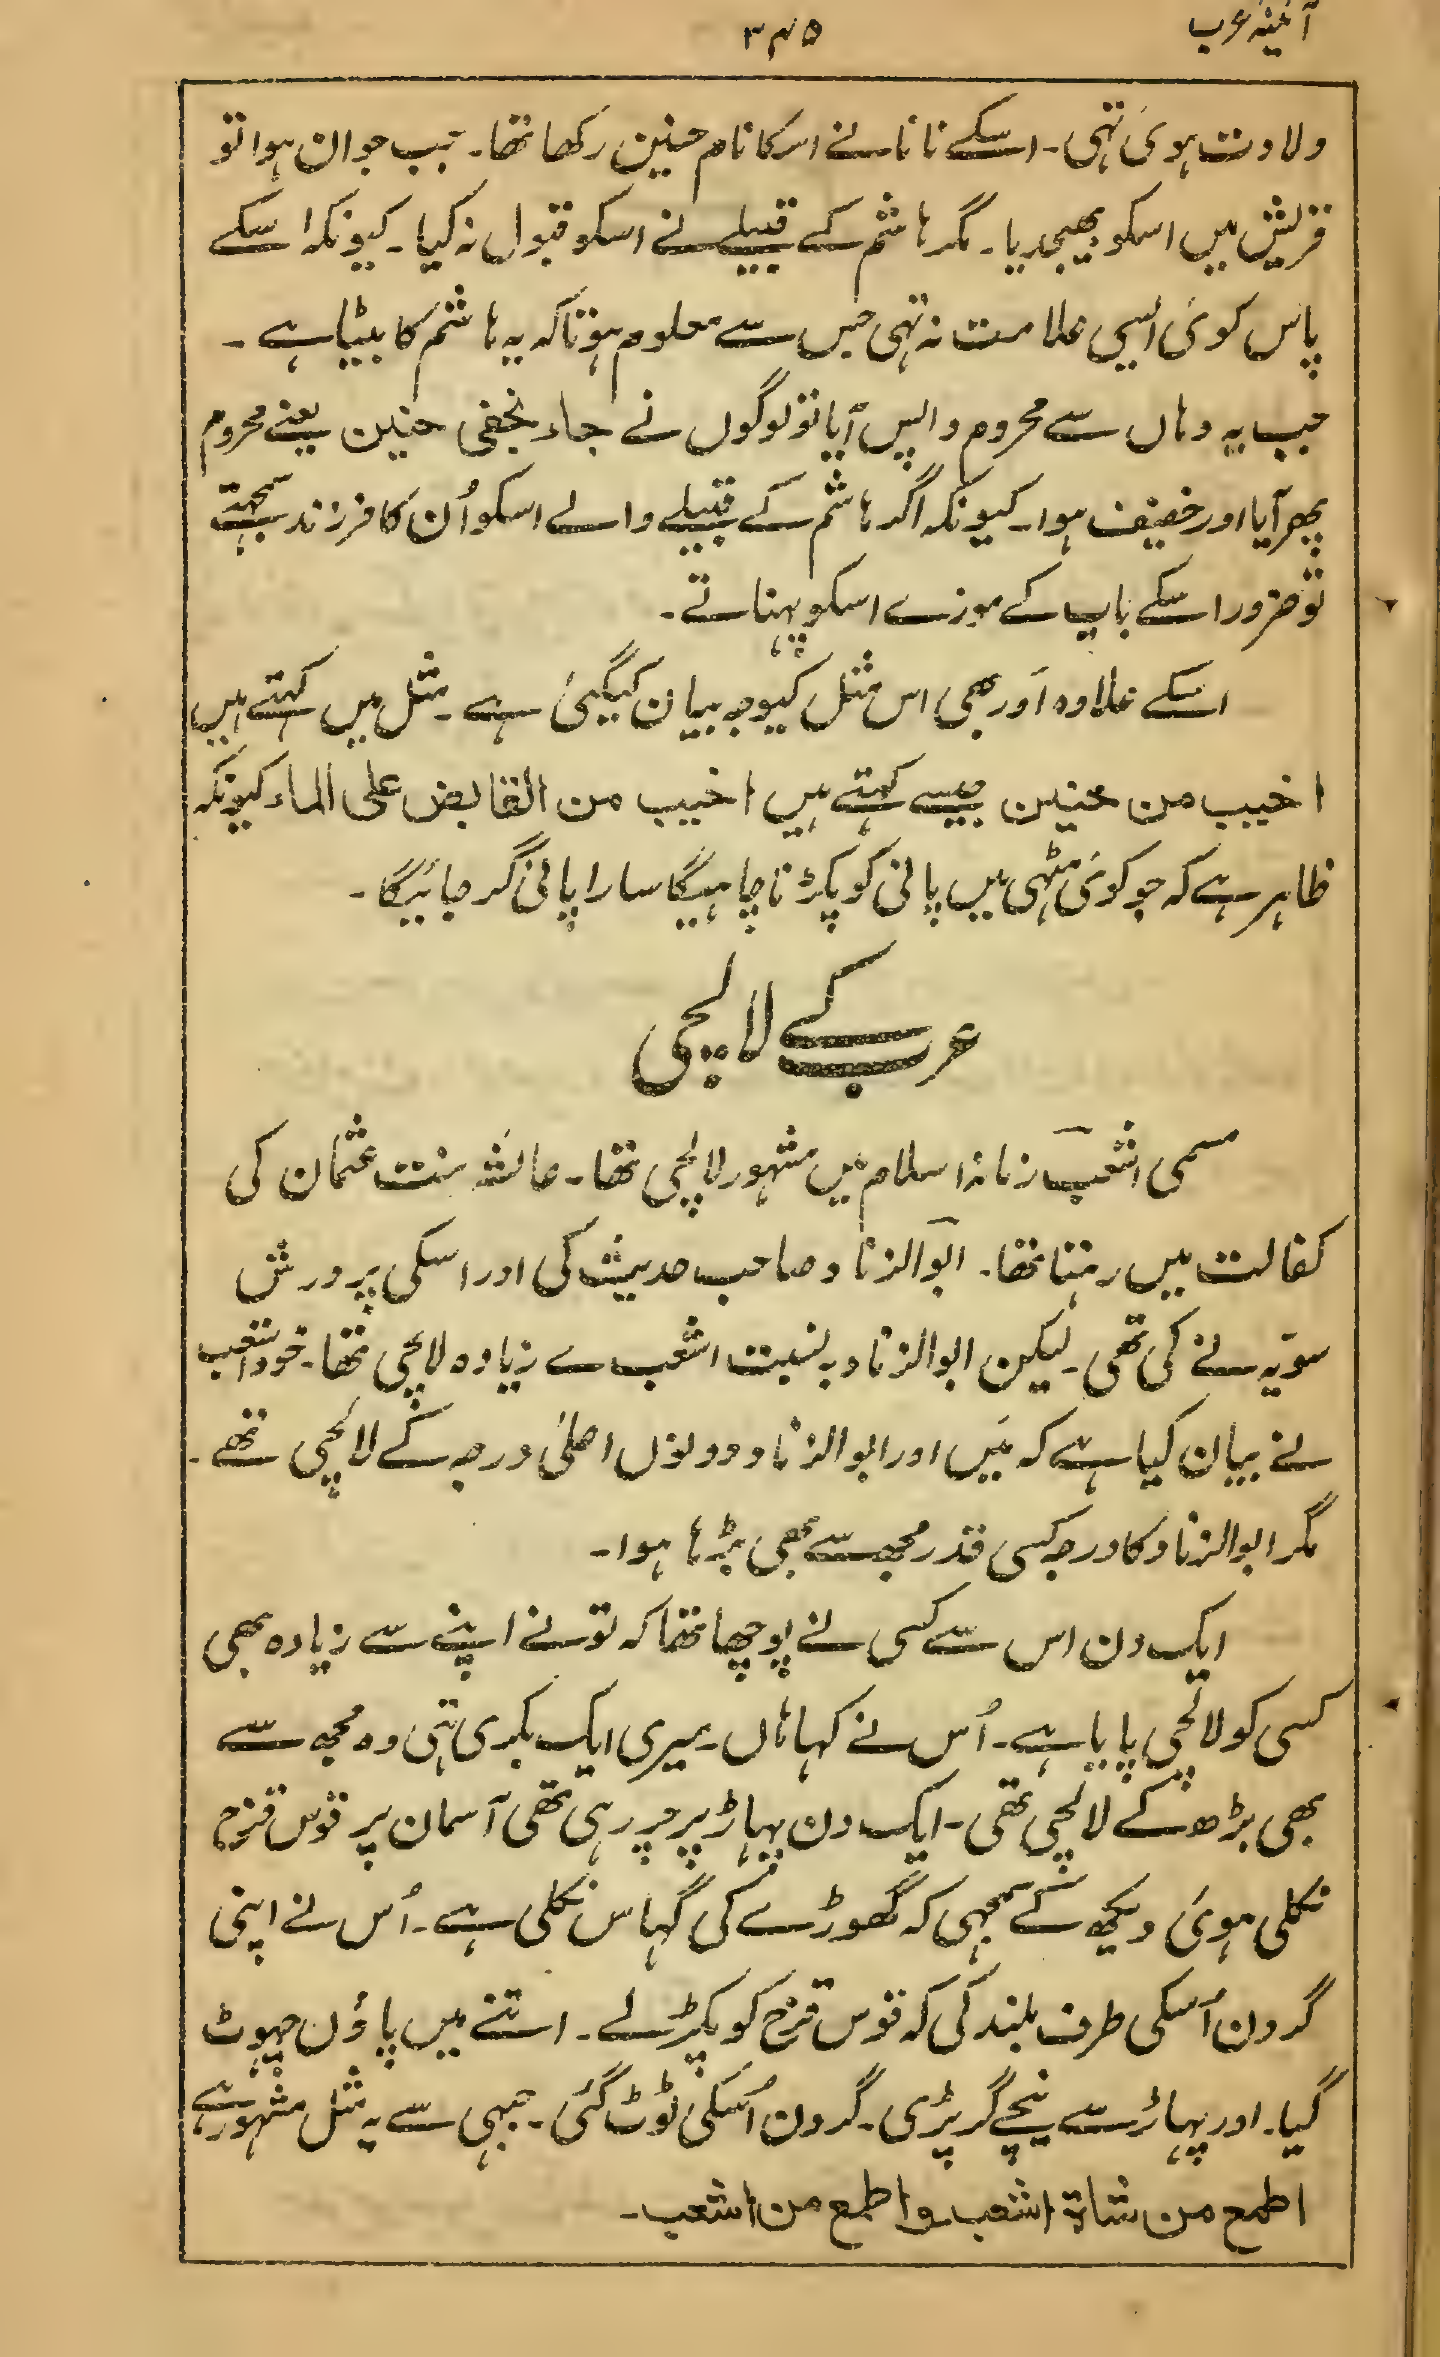 آئینۂ عرب
۳۴۵
ولادت ہوئی تہی۔ اسکے نانا نے اسکا نام حنین رکھا تھا۔ جب جوان ہوا تو
قریش میں اسکو بھیجدیا۔ مگر ہاشم کے قبیلے نے اسکو قبول نہ کیا۔ کیونکہ اسکے
پاس کوئی ایسی علامت نہ تہی جس سے معلوم ہوتا کہ یہ ہاشم کا بیٹا ہے۔
جب یہ وہاں سے محروم واپس آیا تو لوگوں نے جاء بخفی حنین یعنے محروم
پھر آیا اور خفیف ہوا۔ کیونکہ اگر ہاشم کے قبیلے والے اسکو اُن کا فرزند سمجہتے
تو ضرور اسکے باپ کے موزے اسکو پہناتے۔
اسکے علاوہ اَور بھی اس مثل کیوجہ بیان کیگیئ ہے۔ مثل میں کہتے ہیں
اخیب من حنین جیسے کہتے ہیں اخیب من القابض علی الماء کیونکہ
ظاہر ہے کہ جو کوئی مٹہی میں پانی کو پکڑنا چاہیگا سارا پانی گر جائیگا۔
عرب کے لالچی
مسمی اشعب زمانہ اسلام میں مشہور لالچی تھا۔ عائشہ بنت عثمان کی
کفالت میں رہتا تھا۔ ابو الزناد صاحب حدیث کی اور اسکی پرورش
سویہ نے کی تھی۔ لیکن ابو الزناد بہ نسبت اشعب کے زیادہ لالچی تھا۔ خود اشعب
نے بیان کیا ہے کہ مَیں اور ابو الزناد دونوں اعلیٰ درجہ کے لالچی تھے۔
مگر ابو الزناد کا درجہ کسی قدر مجھ سے بھی بڑہا ہوا۔
ایک دن اس سے کسی نے پوچھا تھا کہ تو نے اپنے سے زیادہ بھی
کسی کو لالچی پایا ہے۔ اُس نے کہا ہاں۔ میری ایک بکری تہی وہ مجھ سے
بھی بڑھ کے لالچی تھی۔ ایک دن پہاڑ پر چر رہی تھی آسمان پر قوس قزح
نکلی ہوئی دیکھ کے سمجہی کہ گھوڑے کی گہاس نکلی ہے۔ اُس نے اپنی
گردن اُسکی طرف بلند کی کہ قوس قزح کو پکڑ لے۔ اتنے میں پاؤں چہوٹ
گیا۔ اور پہاڑ سے نیچے گر پڑی۔ گردن اُسکی ٹوٹ گئی۔ جبہی سے یہ مثل مشہور ہے
اطمع من شاة اشعب واطمع من اشعب۔